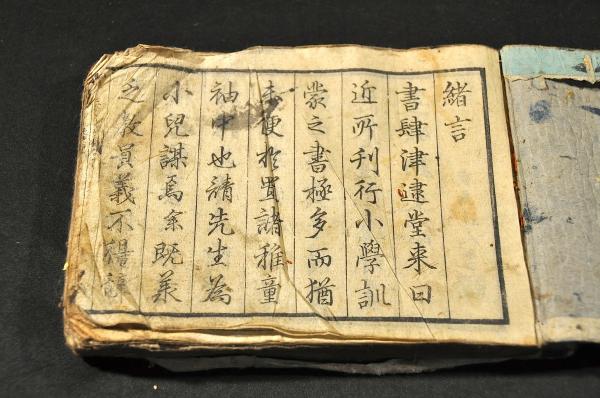 緒言
書肆津逮堂来曰
近所刊行小學訓
蒙之書極多而猶
未便扵置諸稚童
袖中也請先生為
小兒謀焉余既業
之教員義不得